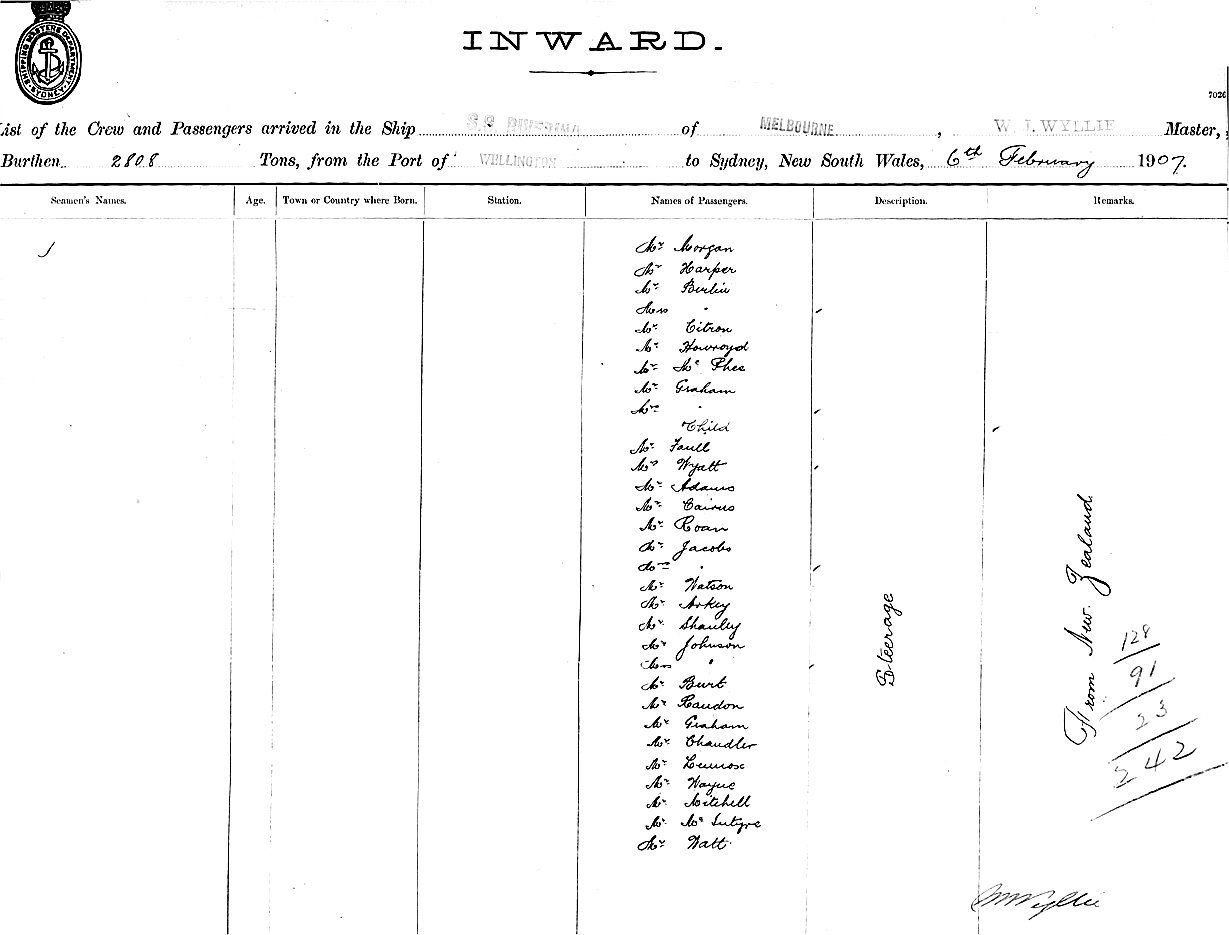 SHIPPING MASTERS DEPARTMENT
SYDNEY
INWARD.
7026
List of the Crew and Passengers arrived in the Ship S.S. RIVERINA of MELBOURNE, W. J. WYLLIE Master,
Burthen 2808 Tons, from the Port of WELLINGTON to Sydney, New South Wales, 6th February 1907.
Seamen's Names. Age. Town or Country where Born. Station. Names of Passengers. Description. Remarks.
Mr Morgan
Mr Harper
Mr Berlin
Mrs "
Mr Citron
Mr Howroyd
Mr Mc Phee
Mr Graham
Mrs "
Child
Mr Faull
Mrs Wyatt
Mr Adams
Mr Cairns
Mr Roan
Mr Jacobs
Mrs "
Mr Watson
Mr Arkey
Mr Shanley
Mr Johnson
Mrs "
Mr Burt
Mr Raudon
Mr Graham
Mr Chandler
Mr Lennox
Mr Wayne
Mr Mitchell
Mr Mc Intyre
Mr Watt
Steerage
From New Zealand
128
91
23
242
Wyllie